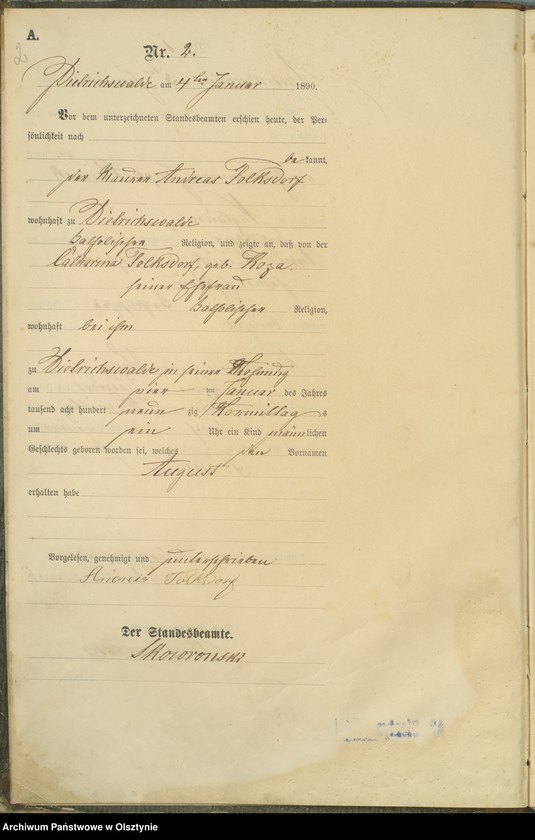 A.
2
Nr. 2.
Dietrichswalde am 4ten Januar 1890.
Vor dem unterzeichneten Standesbeamten erschien heute, der Per-
sönlichkeit nach
be kannt,
der Maurer Andreas Tolksdorf
wohnhaft zu Dietrichswalde
katholischer Religion, und zeigte an, daß von der
Catharina Tolksdorf, geb. Koza
seiner Ehefrau
katholischer Religion,
wohnhaft bei ihm
zu Dietrichswalde in seiner Wohnung
am vier ten Januar des Jahres
tausend acht hundert neun zig Vormittags
um ein Uhr ein Kind männlichen
Geschlechts geboren worden sei, welches den Vornamen
August
erhalten habe
Vorgelesen, genehmigt und unterschrieben
Andreas Tolksdorf
Der Standesbeamte.
Skowronski
Archiwum Państwowe w Olsztynie